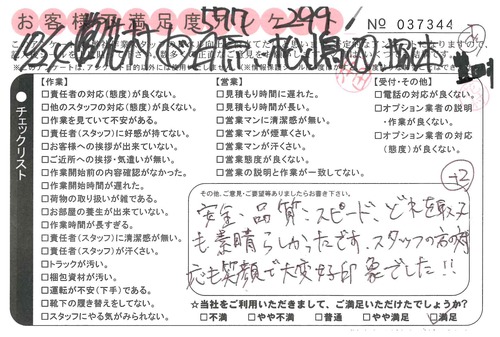 お客様
No 037344
チェックリスト
【作業】
□責任者の対応(態度)が良くない。
□他のスタッフの対応(態度)が良くない。
□作業を見ていて不安がある。
□責任者(スタッフ)に好感が持てない。
□お客様への挨拶が出来ていない。
□ご近所への挨拶・気遣いが無い。
□作業開始前の内容確認がなかった。
□作業開始時間が遅れた。
□荷物の取り扱いが雑である。
□お部屋の養生が出来ていない。
□作業時間が長すぎる。
□責任者(スタッフ)に清潔感が無い。
□責任者(スタッフ)が汗くさい。
□トラックが汚い。
□梱包資材が汚い。
□運転が不安(下手)である。
□靴下の履き替えをしてない。
□スタッフにやる気がみられない。
【営業】
□見積もり時間に遅れた。
□見積もり時間が長い。
□営業マンに清潔感が無い。
□営業マンが煙草くさい。
□営業マンが汗くさい。
□営業態度が良くない。
□営業の説明と作業が一致してない。
【受付・その他】
□電話の対応が良くない。
□オプション業者の説明
・作業が良くない。
□オプション業者の対応
(態度)が良くない。
+2
その他、ご意見・ご要望等ありましたらお書き下さい。
安全、品質、スピード、どれを取って
も素晴らしかったです。スタッフの方の対
応も笑顔で大変好印象でした!!
☆当社をご利用いただきまして、ご満足いただけたでしょうか?
□不満 □やや不満 □普通 □やや満足 □満足